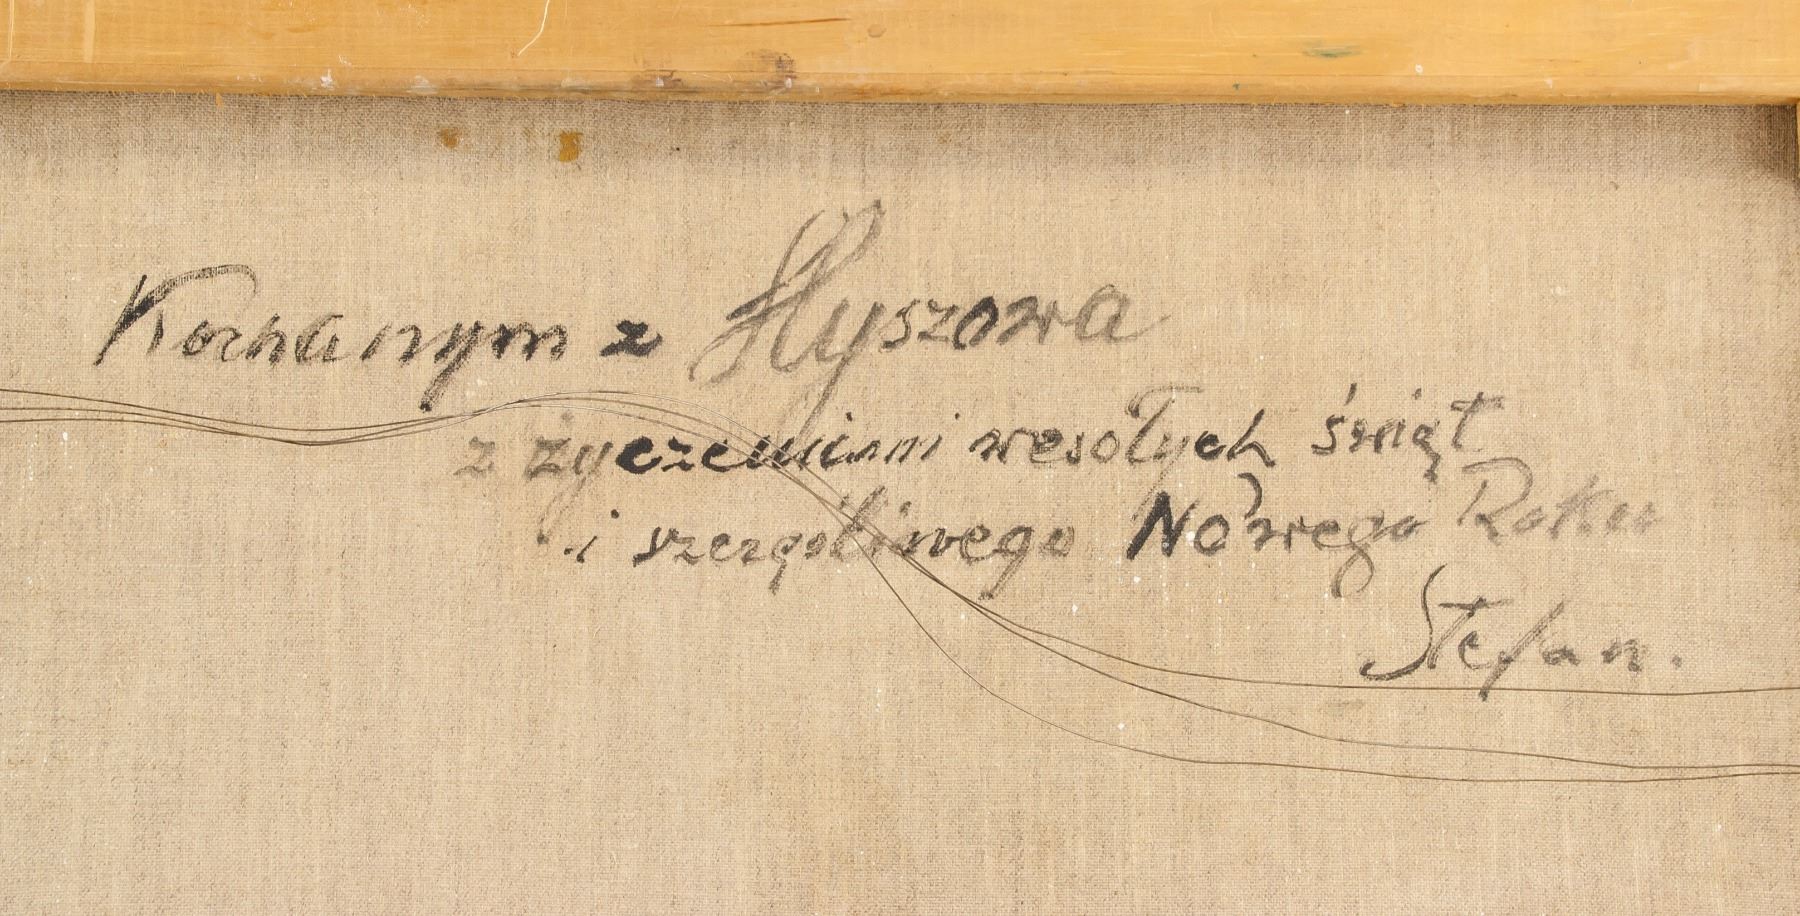 Kochanym z Hyszowa
z życzeniami wesołych świąt
i szczęśliwego Nowego Roku
Stefan.